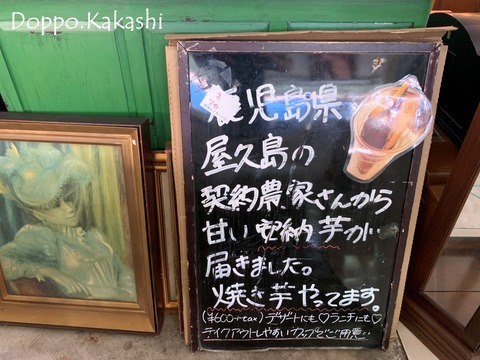 Doppo.Kakashi
鹿児島県
屋久島の
契約農家さんから
甘い安納芋が
届きました。
焼き芋やってます。
(¥600+tax) デザートにも♡ランチにも♡
テイクアウトしやすいカップでご用意